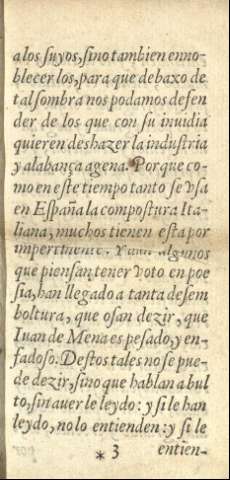 a los suyos, sino tambien enno-
blecer los, para que debaxo de
tal sombra nos podamos defen
der de los que con su inuidia
quieren deshazer la industria
y alabança agena. Porque co-
mo en este tiempo tanto se vsa
en España la compostura Ita-
liana, muchos tienen esta por
impertinente. Y aun algunos
que piensan tener voto en poe
sia, han llegado a tanta desem
boltura, que osan dezir, que
Iuan de Mena es pesado, y en-
fadoso. Destos tales no se pue-
de dezir, sino que hablan a bul
to, sin auer le leydo: y si le han
leydo, no lo entienden: y si le
* 3 entien-